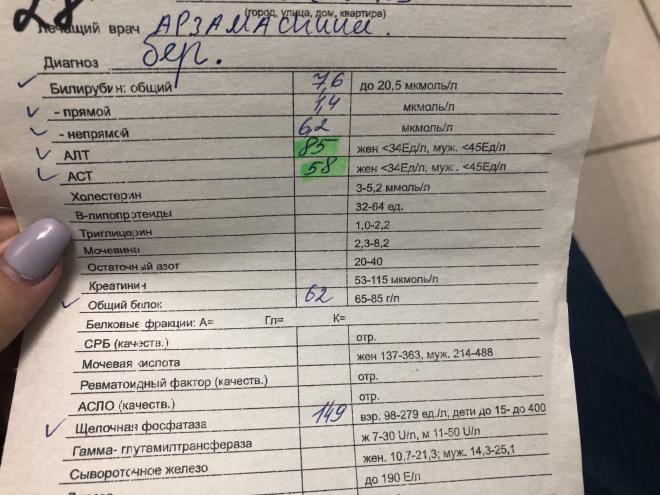 (город, улица, дом, квартира)
Лечащий врач АРЗАМАСЦИНА.
Диагноз бер.
Билирубин: общий 7,6 до 20,5 мкмоль/л
- прямой 1,4 мкмоль/л
- непрямой 6,2 мкмоль/л
АЛТ 85 жен <34Ед/л, муж. <45Ед/л
АСТ 58 жен <34Ед/л, муж. <45Ед/л
Холестерин 3-5,2 ммоль/л
В-липопротеиды 32-64 ед.
Триглицерин 1,0-2,2
Мочевина 2,3-8,2
Остаточный азот 20-40
Креатинин 53-115 мкмоль/л
Общий белок 62 65-85 г/л
Белковые фракции: А= Гл= К=
СРБ (качеств.) отр.
Мочевая кислота жен 137-363, муж. 214-488
Ревматоидный фактор (качеств.) отр.
АСЛО (качеств.) отр.
Щелочная фосфатаза 149 взр. 98-279 ед./л, дети до 15- до 400
Гамма- глутамилтрансфераза ж 7-30 U/л, м 11-50 U/л
Сывороточное железо жен. 10,7-21,3; муж. 14,3-25,1
до 190 Е/л